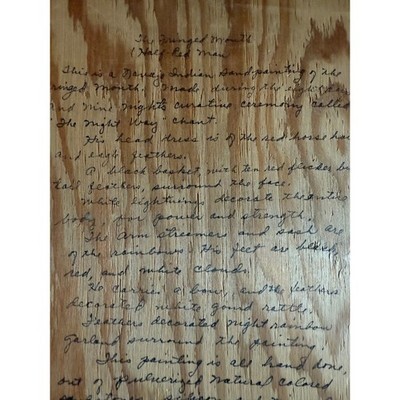 The Fringed Mouth
(Half Red Man
This is a Navajo Indian Sand painting of the
ringed Mouth. Made during the eight days
and nine nights curative ceremony called
"The Night Way" chant.
His head dress is of the red horse hair
and eagle feathers.
A black basket, with ten red flicker
tail feathers, surround the face.
White lightnings decorate the entire
body for power and strength.
The arm streamers and sash are
of the rainbows. His feet are black
red, and white clouds.
He carries a bow, and the feathers
decorated white gourd rattle.
Feathers decorated night rainbow
garland surround the painting.
This painting is all hand done,
out of pulverized natural colored